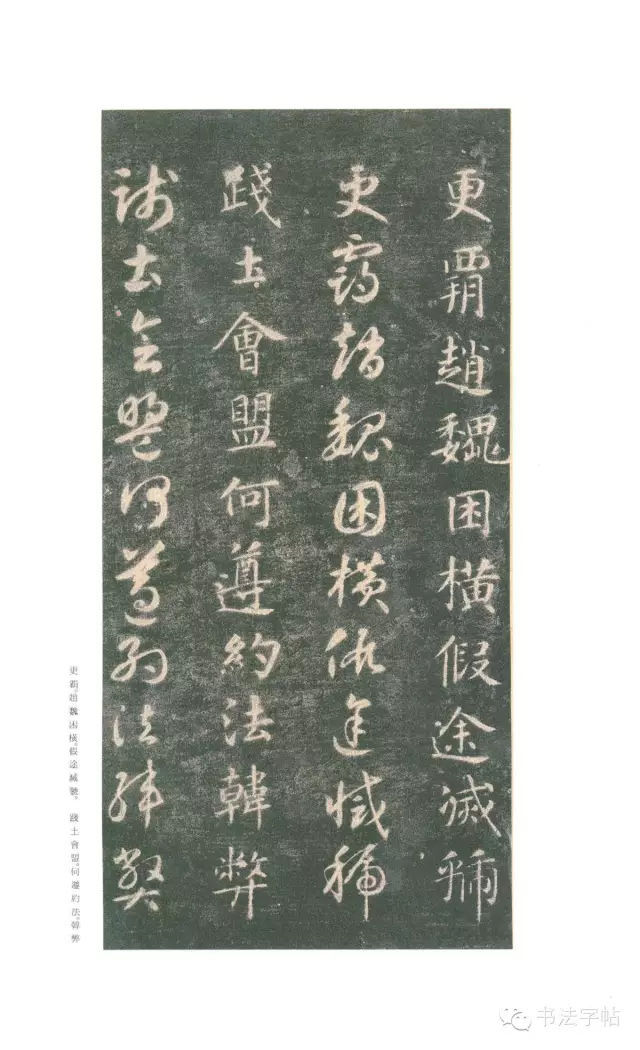 更覇趙魏困横假途滅虢
更霸趙魏困横假途滅虢
踐土會盟何遵約法韓弊
踐土會盟何遵約法韓弊
更霸。趙魏困橫。假途滅虢。 踐土會盟。何遵約法。韓弊
书法字帖